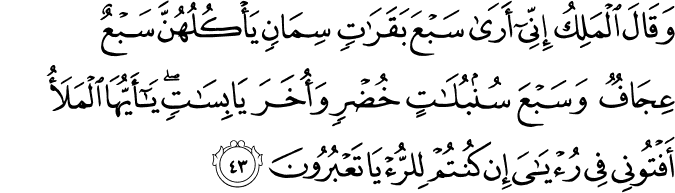 وَقَالَ ٱلْمَلِكُ إِنِّىٓ أَرَىٰ سَبْعَ بَقَرَٰتٍ سِمَانٍ يَأْكُلُهُنَّ سَبْعٌ
عِجَافٌ وَسَبْعَ سُنۢبُلَٰتٍ خُضْرٍ وَأُخَرَ يَابِسَٰتٍ ۖ يَٰٓأَيُّهَا ٱلْمَلَأُ
أَفْتُونِى فِى رُءْيَٰىَ إِن كُنتُمْ لِلرُّءْيَا تَعْبُرُونَ ٤٣